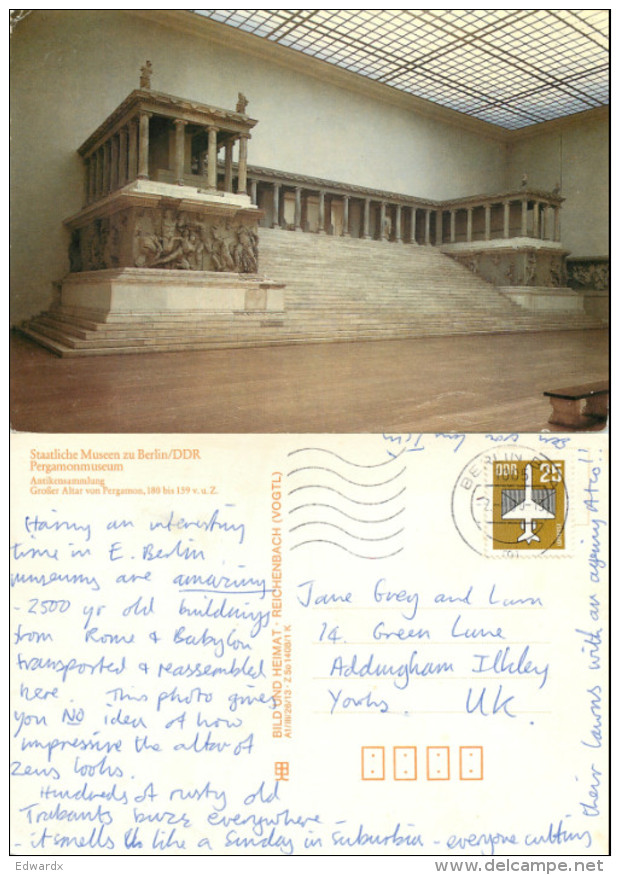 Staatliche Museen zu Berlin/DDR
Pergamonmuseum
Antikensammlung
Großer Altar von Pergamon, 180 bis 159 v. u. Z.
Having an interesting
time in E. Berlin.
museums are amazing
- 2500 yr old buildings
from Rome & Babylon
transported & reassembled
here. This photo gives
you NO idea of how
impressive the altar of
Zeus looks.
Hundreds of rusty old
Trabants buzz everywhere -
- it smells like a Sunday in Suburbia - everyone cutting
their lawns with an ageing Atco!!
BILD UND HEIMAT · REICHENBACH (VOGTL)
A1/III/26/13 · Z So 1408/1 K
BERLIN
1085
DDR 25
Jane Grey and
14. Green Lane
Addingham Ilkley
Yorks. UK.
Edwardx
www.delcampe.net